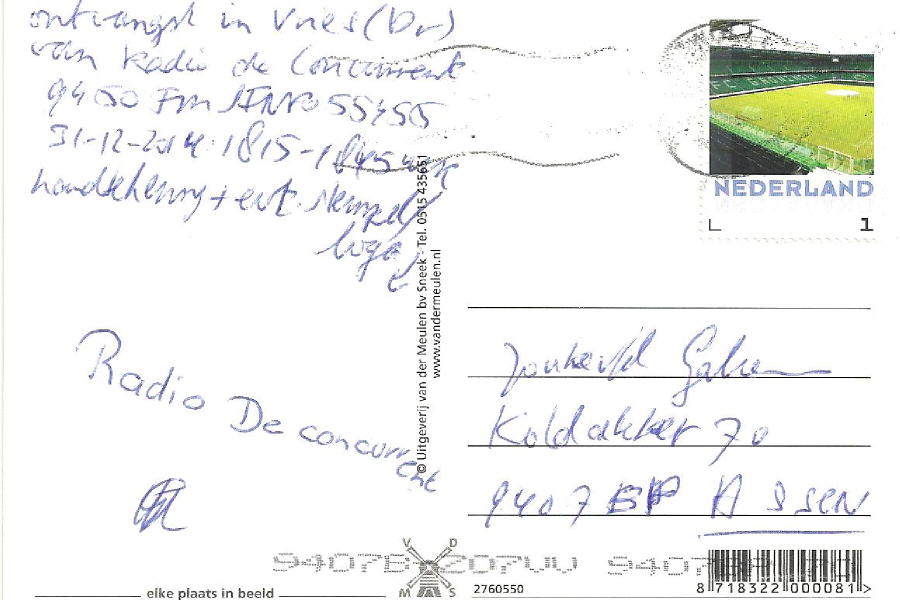 ontvangst in Vries (Dr)
van Radio de Concurrent
9450 Fm SINPO 55455
31-12-2014 1815-1845
handtekening +
logo
Radio De concurrent
© Uitgeverij van der Meulen bv Sneek - Tel. 0515 435651
www.vandermeulen.nl
NEDERLAND
1
Koldakker 70
9407 BP ASSEN
V D
M S
elke plaats in beeld
2760550
8 718322 000081 >